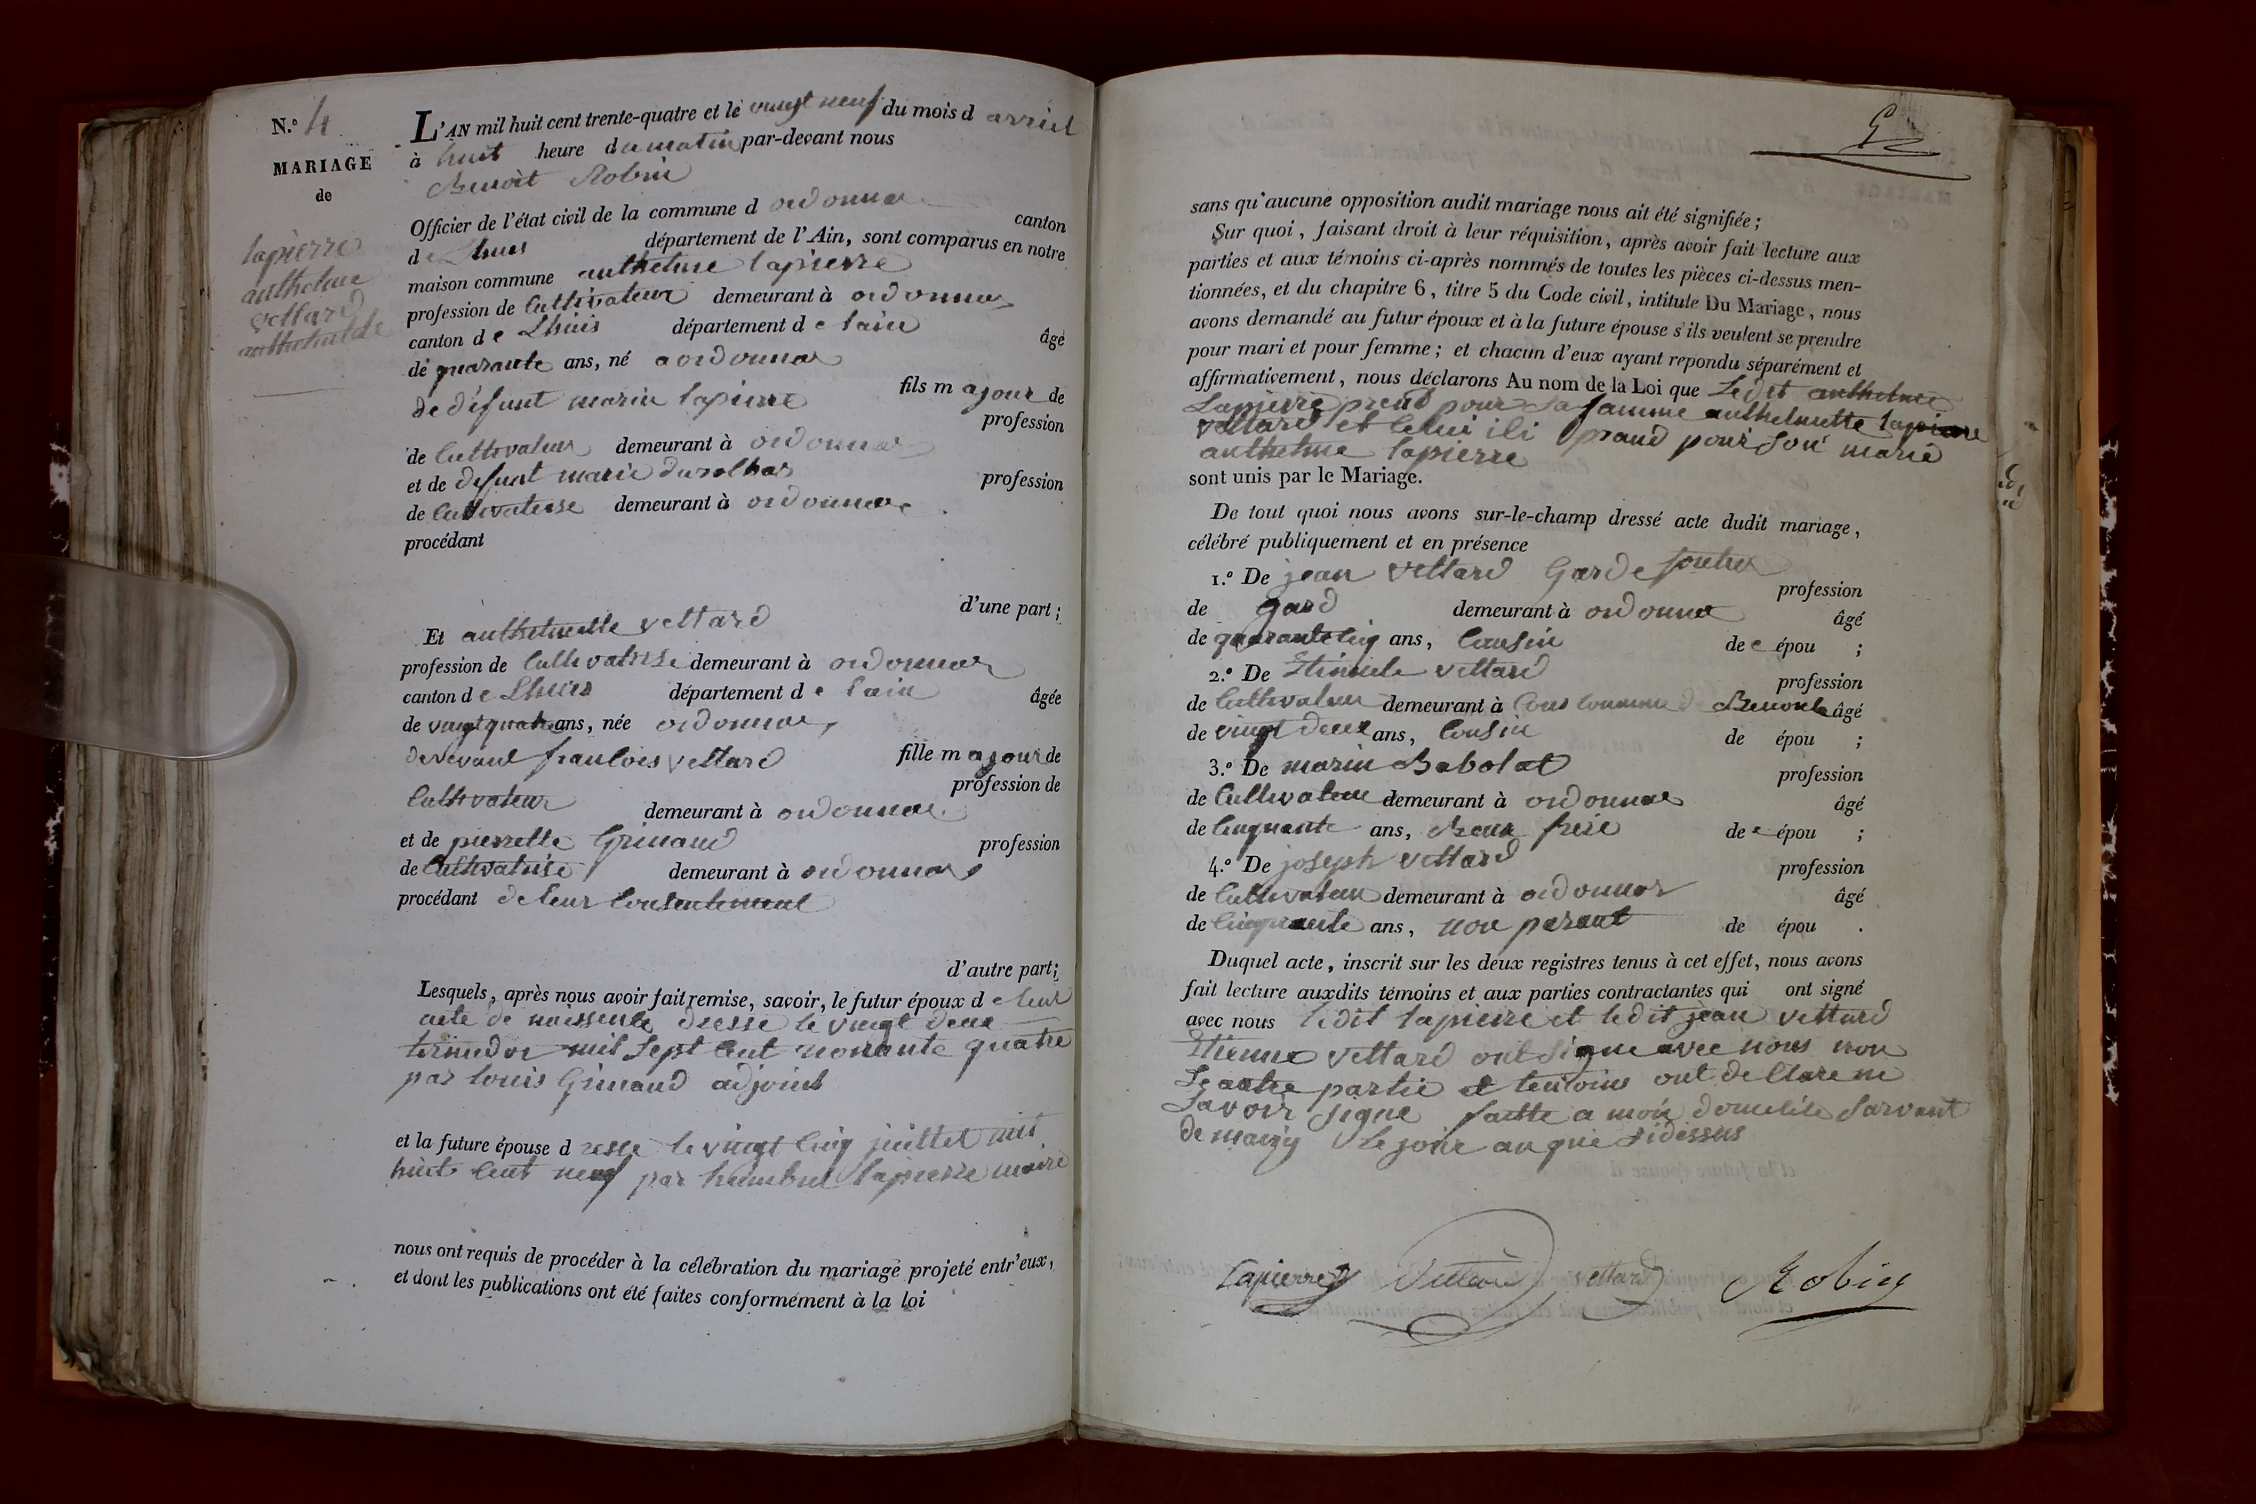 N.º 4
MARIAGE
de
lapierre
anthelme
vettard
anthelmette
L'AN mil huit cent trente-quatre et le vingt neuf du mois d avriel
à huit heure du matin par-devant nous
Benoit Robin
Officier de l'état civil de la commune d ordonnas canton
d e Lhuis département de l'Ain, sont comparus en notre
maison commune anthelme lapierre
profession de Cultivateur demeurant à ordonnas
canton d e Lhuis département d e lain âgé
de quarante ans, né a ordonnas
fils m ajour de
de défunt marin lapierre profession
de Cultivateur demeurant à ordonnas
et de defunt marie profession
de Cultivateuse demeurant à ordonnas
procédant
d'une part;
Et anthelmette vettard
profession de Cultivatrise demeurant à ordonnas
canton d e Lhuis département d e lain âgée
de vingt quatre ans, née ordonnas
fille m ajour de
francois vettard profession de
Cultivateur demeurant à ordonnas
et de pierrette Grinand profession
de Cultivatrise demeurant à ordonnas
procédant de leur Consentement
d'autre part;
Lesquels, après nous avoir fait remise, savoir, le futur époux d e leur
acte de naissence dresse le vingt deux
mil sept Cent nonante quatre
par louis Grinand adjoint
et la future épouse d resse le vingt Cinq juillet mil
huit Cent neuf par humbert lapierre maire
nous ont requis de procéder à la célébration du mariage projeté entr'eux,
et dont les publications ont été faites conformément à la loi
sans qu'aucune opposition audit mariage nous ait été signifiée;
Sur quoi, faisant droit à leur réquisition, après avoir fait lecture aux
parties et aux témoins ci-après nommés de toutes les pièces ci-dessus men-
tionnées, et du chapitre 6, titre 5 du Code civil, intitule Du Mariage, nous
avons demandé au futur époux et à la future épouse s'ils veulent se prendre
pour mari et pour femme; et chacun d'eux ayant repondu séparément et
affirmativement, nous déclarons Au nom de la Loi que Ledit anthelme
Lapierre prend pour sa famme anthelmette
vettard et Celui ili prand pour son marie
anthelme lapierre
sont unis par le Mariage.
De tout quoi nous avons sur-le-champ dressé acte dudit mariage,
célébré publiquement et en présence
1.º De jean vettard Garde profession
de gard demeurant à ordonnas âgé
de quarante Cinq ans, Cousin de e épou ;
2.º De Etienne vettard profession
de Cultivateur demeurant à Commune d Benonce âgé
de vingt deux ans, Cousin de épou ;
3.º De marin Babolat profession
de Cultivateur demeurant à ordonnas âgé
de Cinquante ans, Beau frere de e épou ;
4.º De joseph vettard profession
de Cultivateur demeurant à ordonnas âgé
de Cinquante ans, non parant de épou .
Duquel acte, inscrit sur les deux registres tenus à cet effet, nous avons
fait lecture auxdits témoins et aux parties contractantes qui ont signé
avec nous ledit lapierre et ledit jean vettard
Etienne vettard ont signe avec nous non
Le autre partie et temoins ont declare ne
Savoir signe faitte a mon domicile Sarvant
de mairy le jour an que sidessus
Lapierre vettard vettard Robin